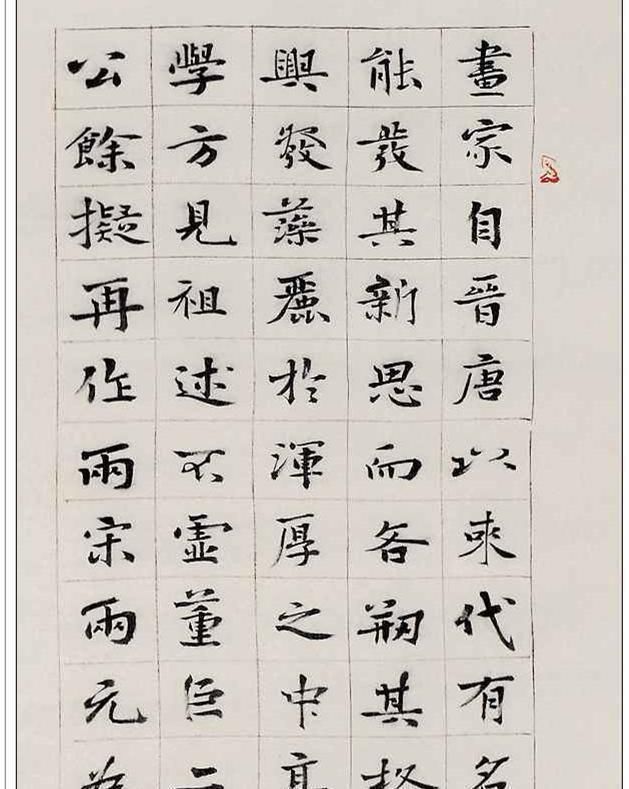 畫宗自晉唐以來代有名
能發其新思而各剏其格
興發藻麗於渾厚之中高
學方見祖述不虛董巨二
公餘擬再作兩宋兩元為